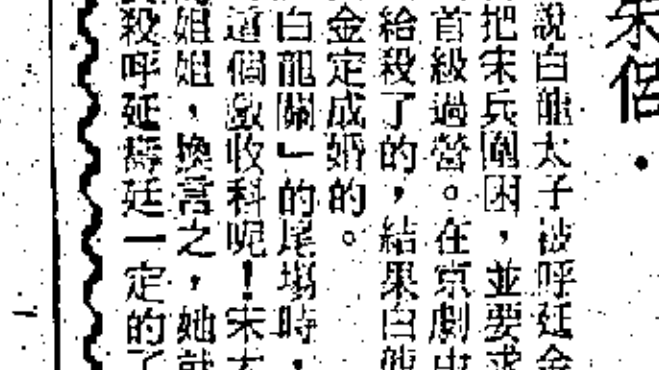 宋侶．
說白龍太子被呼延金
把宋兵圍困，並要求
首級過營。在京劇中
給殺了的，結果白龍
金定成婚的。
白龍關」的尾場時，
這個戲收科呢！宋太
姐姐，換言之，她就
殺呼延壽廷一定的了